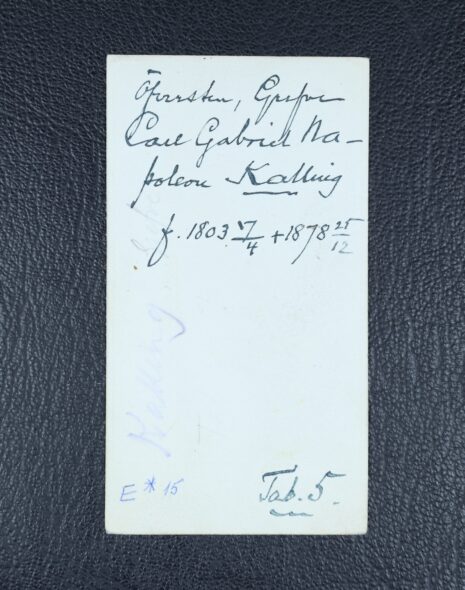 Öfversten, Grefve
Carl Gabriel Na-
poleon Kalling
f. 1803 17/4 +1878 25/12
Kalling
E* 15
Tab. 5.